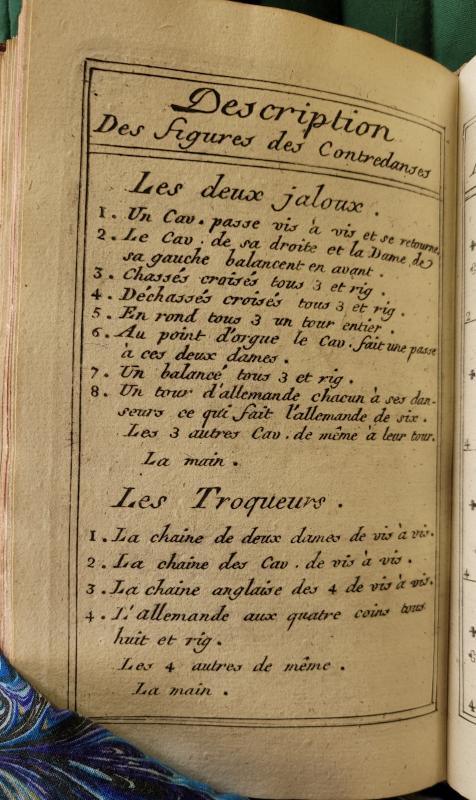 Description
Des figures des Contredanses
Les deux jaloux.
1. Un Cav. passe vis à vis et se retourne.
2. Le Cav. de sa droite et la Dame de
sa gauche balancent en avant.
3. Chassés croisés tous 3 et rig.
4. Déchassés croisés tous 3 et rig.
5. En rond tous 3 un tour entier.
6. Au point d'orgue le Cav. fait une passe
a ces deux dames.
7. Un balancé tous 3 et rig.
8. Un tour d'allemande chacun à ses dan-
seurs ce qui fait l'allemande de six.
Les 3 autres Cav. de même à leur tour.
La main.
Les Troqueurs.
1. La chaine de deux dames de vis à vis.
2. La chaine des Cav. de vis à vis.
3. La chaine anglaise des 4 de vis à vis.
4. L'allemande aux quatre coins tous
huit et rig.
Les 4 autres de même.
La main.